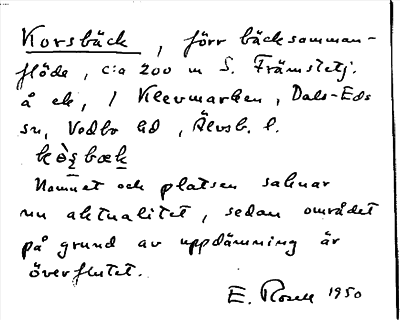 Korsbäck, förr bäcksamman-
flöde, c:a 200 m S. Främstetj.
å ek, / Klevmarken, Dals-Eds
sn, Vedbo hd, Älvsb. l.
kò̀ʂbæk
Namnet och platsen saknar
nu aktualitet, sedan området
på grund av uppdämning är
överflutet.
E. Rosell 1950